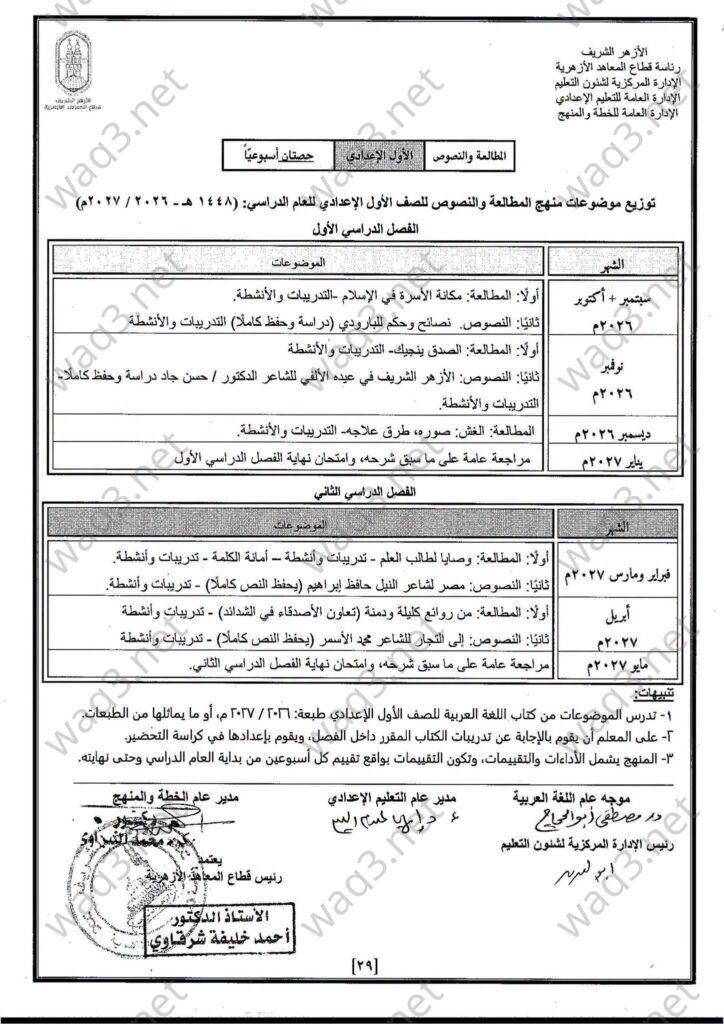 الأزهر الشريف
رئاسة قطاع المعاهد الأزهرية
الإدارة المركزية لشئون التعليم
الإدارة العامة للتعليم الإعدادي
الإدارة العامة للخطة والمنهج
الأزهر الشريف
قطاع المعاهد الأزهرية
المطالعة والنصوص
الأول الإعدادي
حصتان أسبوعيًا
توزيع موضوعات منهج المطالعة والنصوص للصف الأول الإعدادي للعام الدراسي: (١٤٤٨ هـ - ٢٠٢٦ / ٢٠٢٧م)
الفصل الدراسي الأول
الشهر
الموضوعات
سبتمبر + أكتوبر
٢٠٢٦م
أولًا: المطالعة: مكانة الأسرة في الإسلام -التدريبات والأنشطة.
ثانيًا: النصوص. نصائح وحكم للبارودي (دراسة وحفظ كاملًا) التدريبات والأنشطة
نوفمبر
٢٠٢٦م
أولًا: المطالعة: الصدق ينجيك- التدريبات والأنشطة
ثانيًا: النصوص: الأزهر الشريف في عيده الألفي للشاعر الدكتور / حسن جاد دراسة وحفظ كاملًا-
التدريبات والأنشطة.
ديسمبر ٢٠٢٦م
المطالعة: الغش: صوره، طرق علاجه- التدريبات والأنشطة.
يناير ٢٠٢٧م
مراجعة عامة على ما سبق شرحه، وامتحان نهاية الفصل الدراسي الأول
الفصل الدراسي الثاني
الشهر
الموضوعات
فبراير ومارس ٢٠٢٧م
أولًا: المطالعة: وصايا لطالب العلم - تدريبات وأنشطة -- أمانة الكلمة - تدريبات وأنشطة.
ثانيًا: النصوص: مصر لشاعر النيل حافظ إبراهيم (يحفظ النص كاملًا) - تدريبات وأنشطة.
أبريل
٢٠٢٧م
أولًا: المطالعة: من روائع كليلة ودمنة (تعاون الأصدقاء في الشدائد) - تدريبات وأنشطة
ثانيًا: النصوص: إلى التجار للشاعر محمد الأسمر (يحفظ النص كاملًا) - تدريبات وأنشطة
مايو ٢٠٢٧م
مراجعة عامة على ما سبق شرحه، وامتحان نهاية الفصل الدراسي الثاني.
تنبيهات:
١- تدرس الموضوعات من كتاب اللغة العربية للصف الأول الإعدادي طبعة: ٢٠٢٦ / ٢٠٢٧ م، أو ما يماثلها من الطبعات.
٢- على المعلم أن يقوم بالإجابة عن تدريبات الكتاب المقرر داخل الفصل، ويقوم بإعدادها في كراسة التحضير.
٣- المنهج يشمل الأداءات والتقييمات، وتكون التقييمات بواقع تقييم كل أسبوعين من بداية العام الدراسي وحتى نهايته.
موجه عام اللغة العربية
مدير عام التعليم الإعدادي
مدير عام الخطة والمنهج
رئيس الإدارة المركزية لشئون التعليم
يعتمد
رئيس قطاع المعاهد الأزهرية
الأستاذ الدكتور
أحمد خليفة شرقاوي
[٢٩]
waq3.net